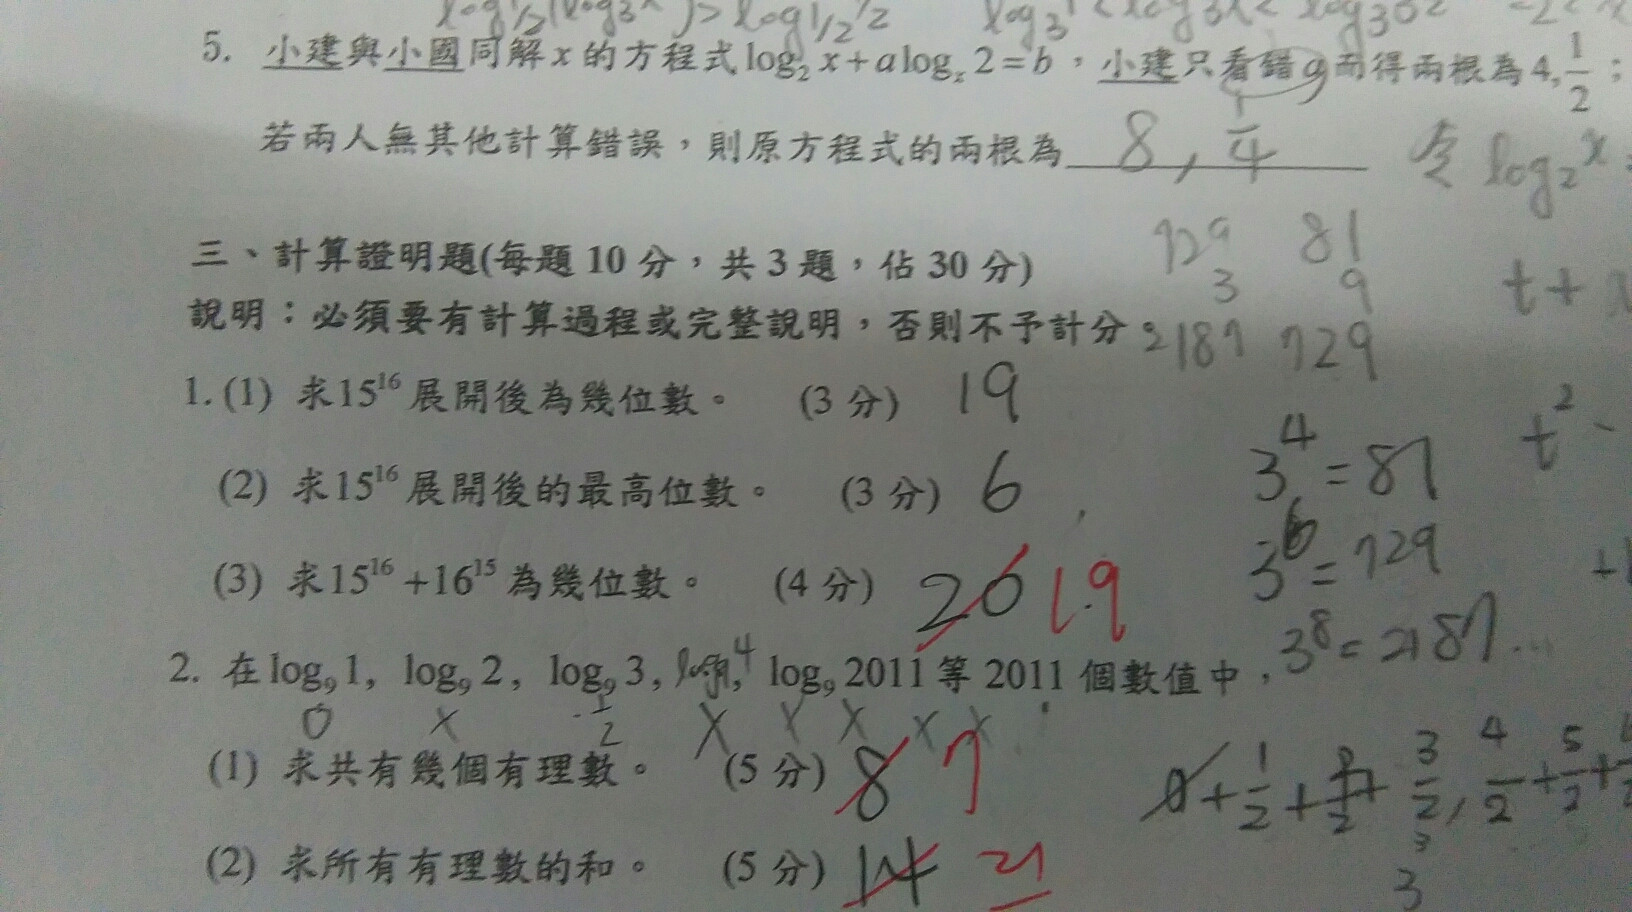 log 1/2 (log 3 x) > log 1/2 1/2
5. 小建與小國同解x的方程式log₂ x + a logₓ 2 = b，小建只看錯a而得兩根為4, 1/2；
若兩人無其他計算錯誤，則原方程式的兩根為 8, 1/4
令 log₂ x
三、計算證明題(每題 10 分，共 3 題，佔 30 分)
729 81
說明：必須要有計算過程或完整說明，否則不予計分。
3 9
t +
2187 729
1. (1) 求15¹⁶展開後為幾位數。 (3 分) 19
3⁴ = 81
t² -
(2) 求15¹⁶展開後的最高位數。 (3 分) 6
3⁶ = 729
(3) 求15¹⁶+16¹⁵為幾位數。 (4 分) 20 19
3⁸ = 2187...
2. 在log₉ 1, log₉ 2, log₉ 3, , log₉ 2011等 2011 個數值中，
0 x 1/2 x x x x x
(1) 求共有幾個有理數。 (5 分) 8 7
0 + 1/2 + 2/2 + 3/2, 4/2 + 5/2 +
(2) 求所有有理數的和。 (5 分) 14 21
3
3